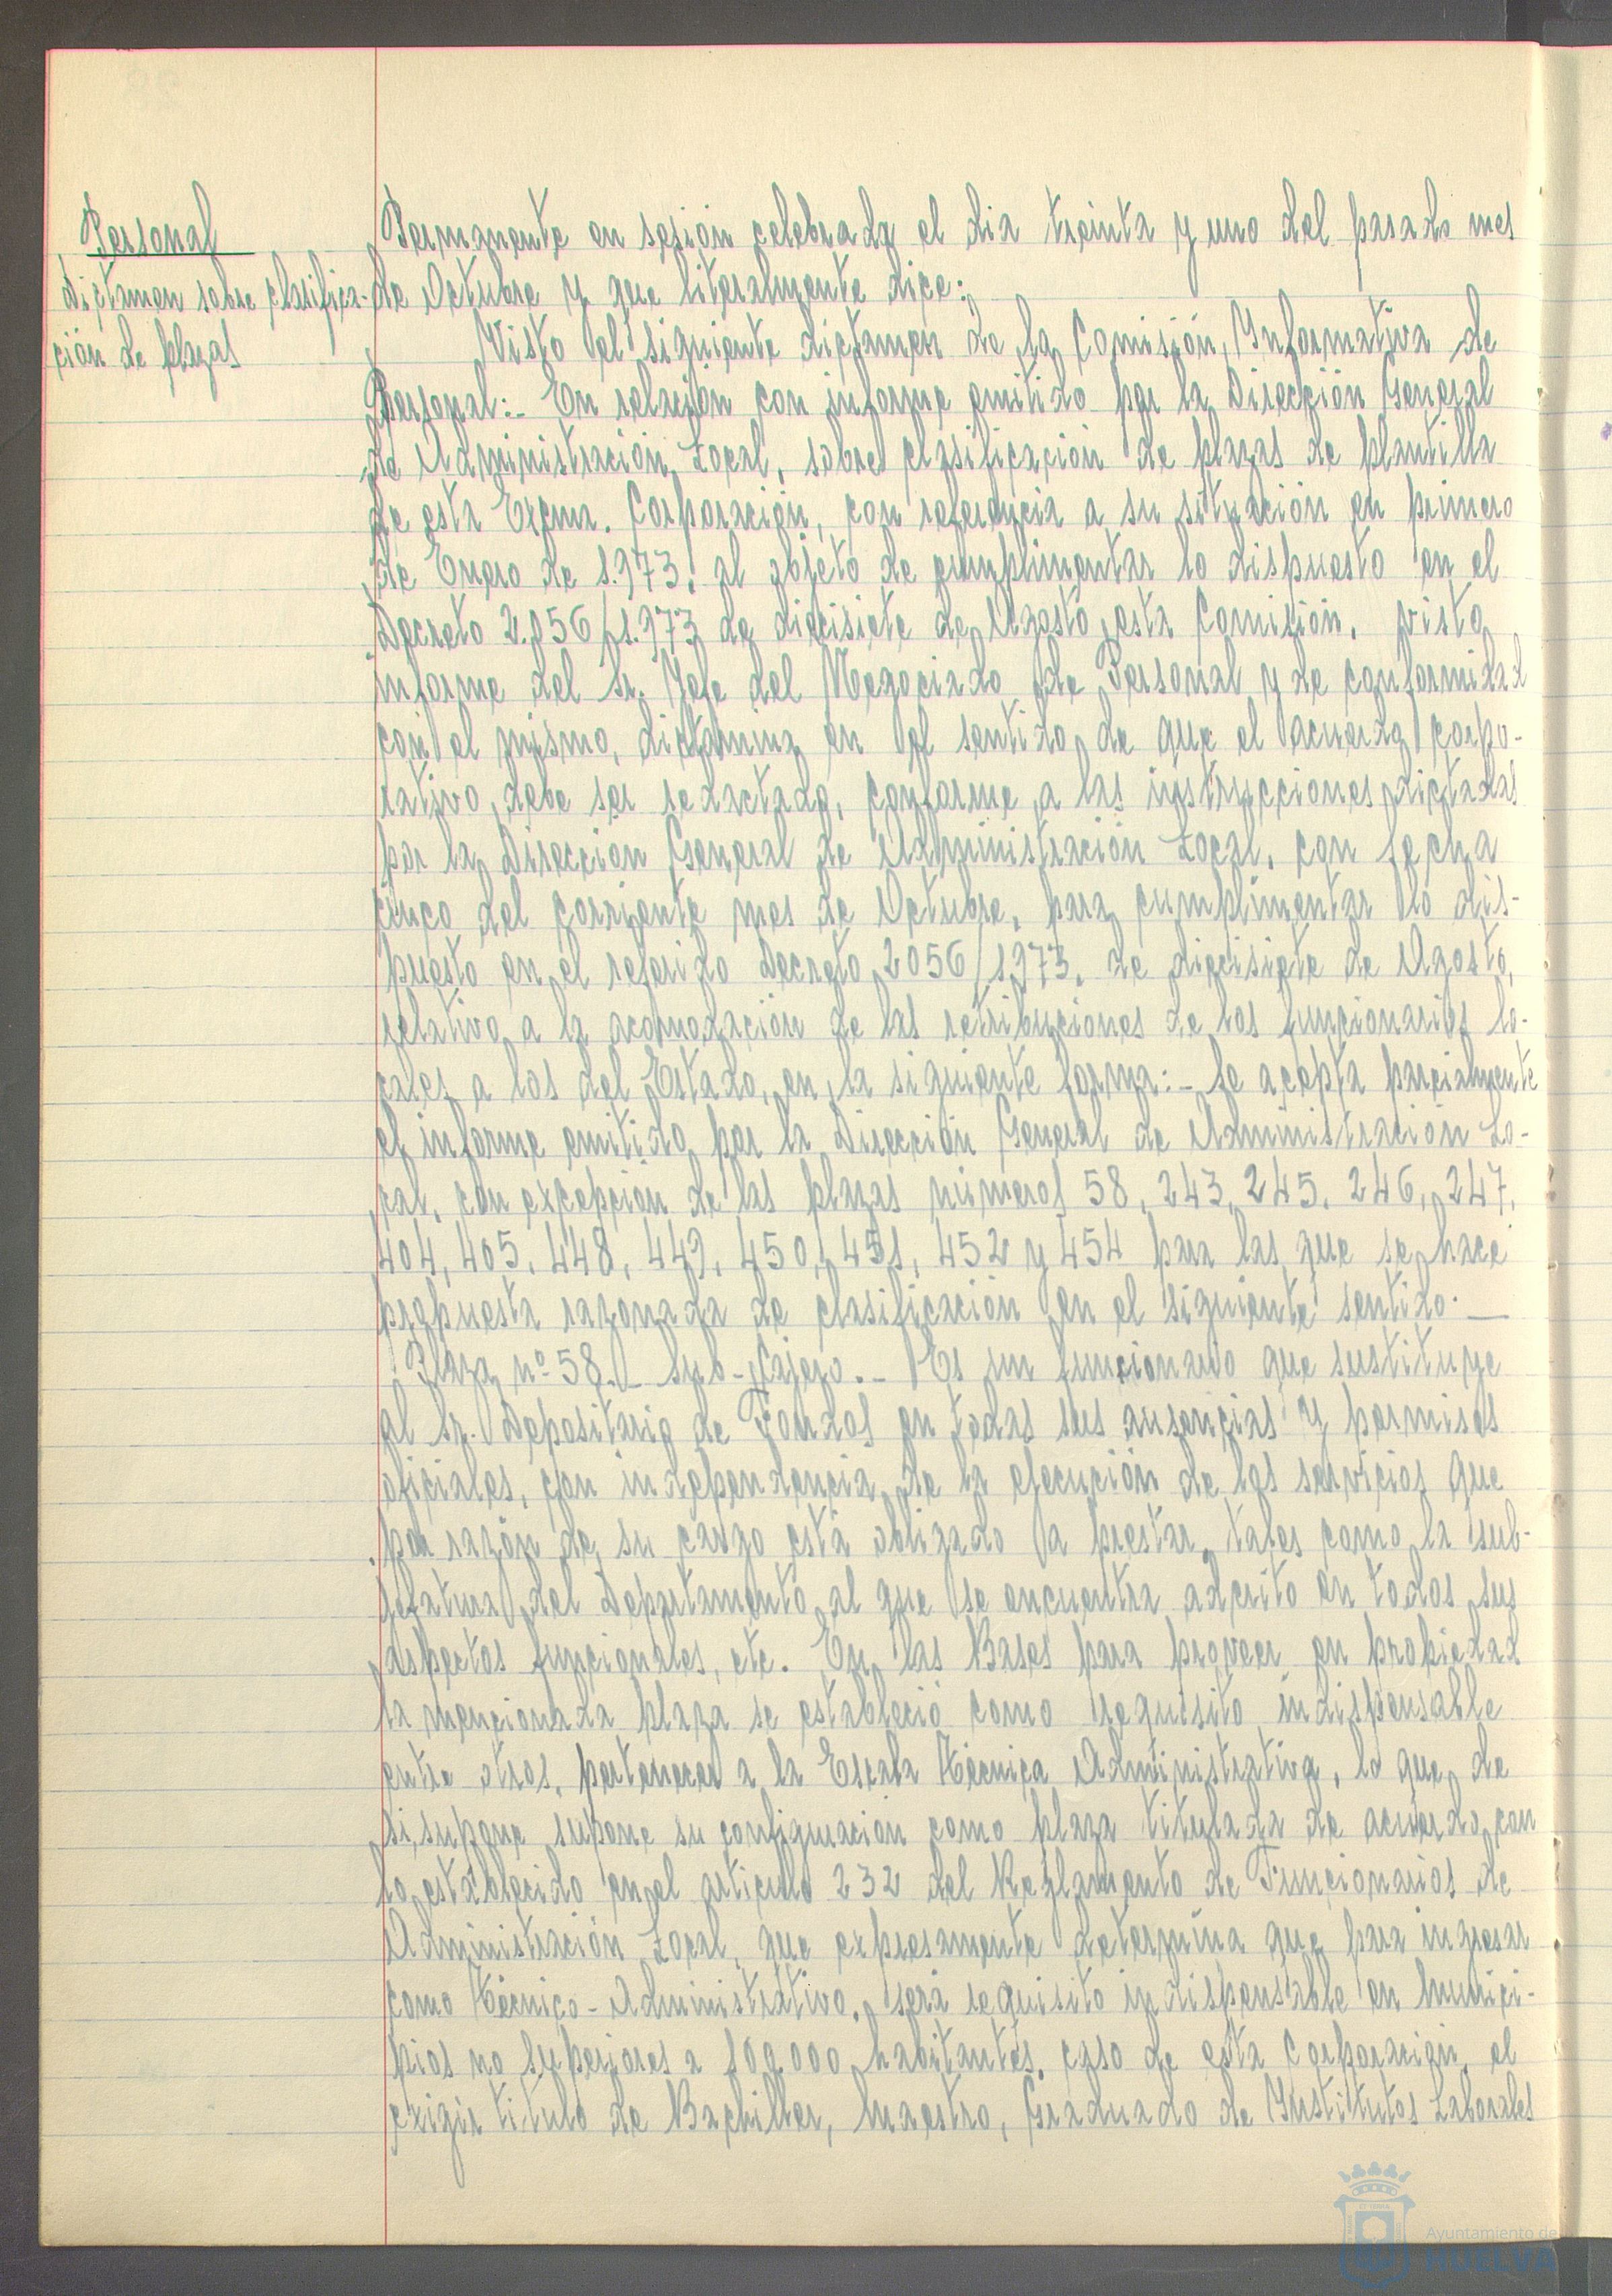 Personal
Dictamen sobre clasifica-
ción de plazas
Permanente en sesión celebrada el dia treinta y uno del pasado mes
de Octubre y que literalmente dice:
Visto el siguiente dictamen de la Comisión Informativa de
Personal:- En relación con informe emitido por la Dirección General
de Administración Local, sobre clasificación de plazas de plantilla
de esta Excma. Corporación, con referencia a su situación en primero
de Enero de 1.973, al objeto de cumplimentar lo dispuesto en el
Decreto 2.056/1.973 de diecisiete de Agosto, esta Comisión, visto
informe del Sr. Jefe del Negociado de Personal y de conformidad
con el mismo, dictamina en el sentido de que el acuerdo corpo-
rativo, debe ser redactado, conforme a las instrucciones dictadas
por la Dirección General de Administración Local, con fecha
cinco del corriente mes de Octubre, para cumplimentar lo dis-
puesto en el referido Decreto 2056/1.973, de diecisiete de Agosto,
relativo a la acomodación de las retribuciones de los funcionarios lo-
cales a los del Estado, en la siguiente forma:- Se acepta parcialmente
el informe emitido por la Dirección General de Administración Lo-
cal, con excepción de las plazas números 58, 243, 245, 246, 247,
404, 405, 448, 449, 450, 451, 452 y 454 para las que se hace
propuesta razonada de clasificación en el siguiente sentido.-
Plaza nº 58.- Sub-Cajero.- Es un funcionario que sustituye
al Sr. Depositario de Fondos en todas sus ausencias y permisos
oficiales, con independencia de la ejecución de los servicios que
por razón de su cargo está obligado a prestar, tales como la sub-
jefatura del Departamento al que se encuentra adscrito en todos sus
aspectos funcionales, etc. En las Bases para proveer en propiedad
la mencionada plaza se estableció como requisito indispensable
entre otros, pertenecer a la Escala Técnica Administrativa, lo que de
si, supone supone su configuración como plaza titulada de acuerdo con
lo establecido en el articulo 232 del Reglamento de Funcionarios de
Administración Local, que expresamente determina que para ingresar
como Técnico-Administrativo, será requisito indispensable en Munici-
pios no superiores a 100.000 habitantes, caso de esta Corporación, el
exigir titulo de Bachiller, Maestro, Graduado de Institutos Laborales
Ayuntamiento de
HUELVA